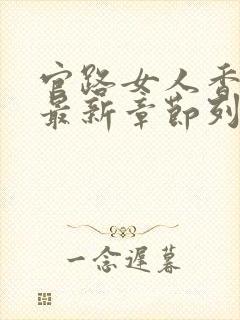 官路女人香
最新章节列
一念迟暮